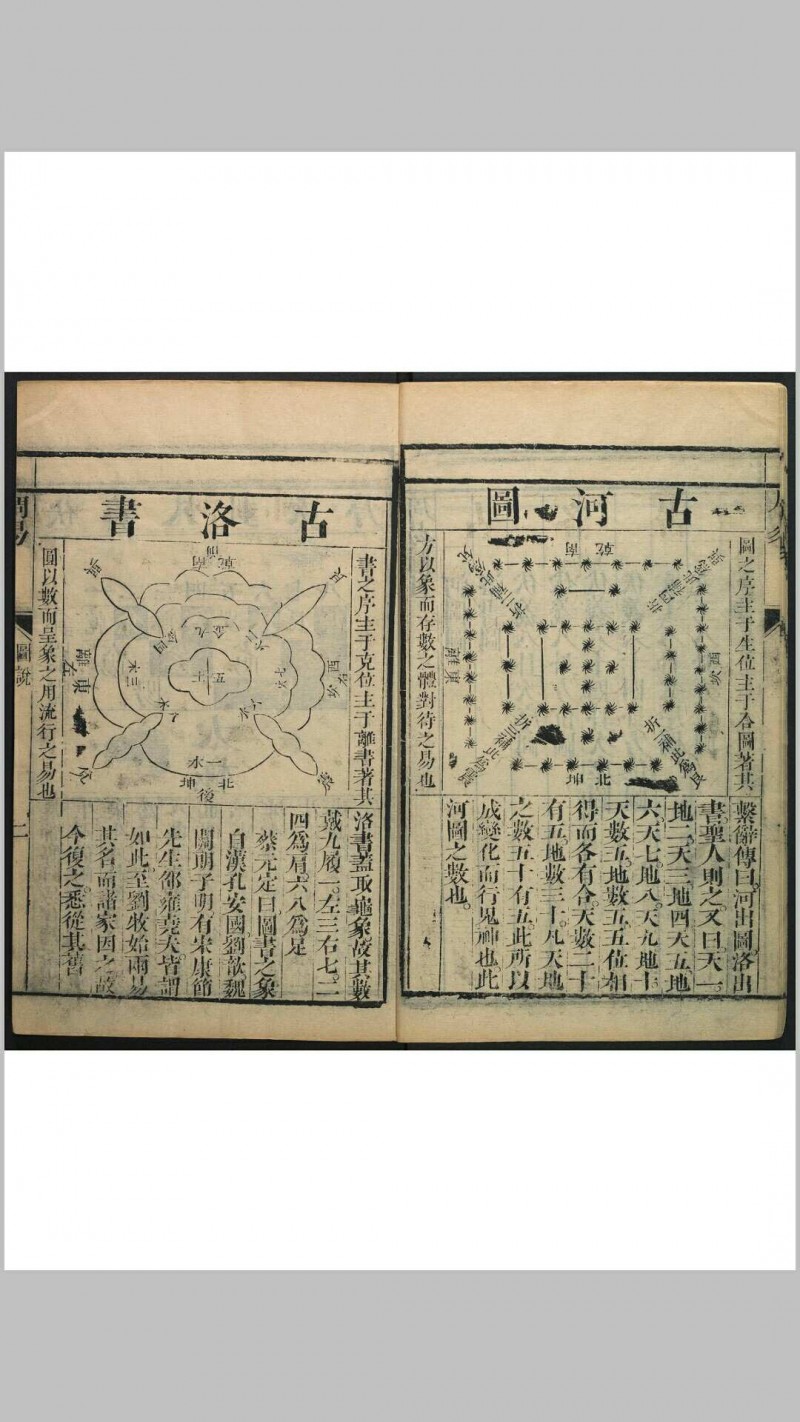 古河圖
圖之序主于生位主于合圖著其
乾南
坤北
離東
方以象而存數之體對待之易也
繫辭傳曰河出圖洛出
書聖人則之又曰天一
地二天三地四天五地
六天七地八天九地十
天數五地數五五位相
得而各有合天數二十
有五地數三十凡天地
之數五十有五此所以
成變化而行鬼神也此
河圖之數也
古洛書
書之序主于克位主于離書著其
乾南
金九
四
五土
木三
離東
一水
坤北
後
圓以數而呈象之用流行之易也
洛書蓋取龜象故其數
戴九履一左三右七二
四為肩六八為足
蔡元定曰圖書之象
自漢孔安國劉歆魏
關朗子明有宋康節
先生邵雍堯夫皆謂
如此至劉牧始兩易
其名而諸家因之故
今復之悉從其舊
周易
圖說
二